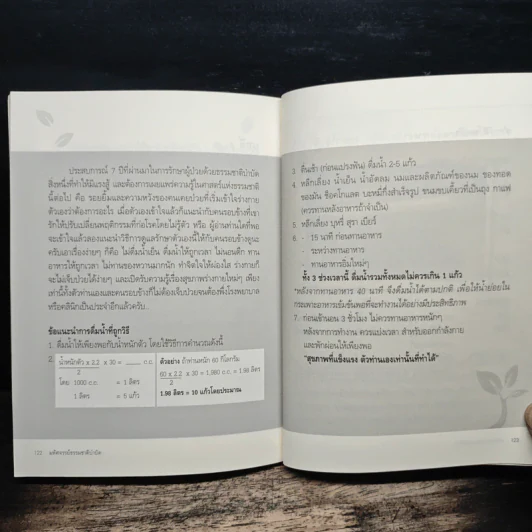 ประสบการณ์ 7 ปีที่ผ่านมาในการรักษาผู้ป่วยด้วยธรรมชาติบำบัด
สิ่งหนึ่งที่ทำให้มีแรงสู้ และต้องการเผยแพร่ความรู้ในศาสตร์แห่งธรรมชาติ
นี้ต่อไป คือ รอยยิ้มและความหวังของคนเคยป่วยที่เริ่มเข้าใจร่างกาย
ตัวเองว่าต้องการอะไร เมื่อตัวเองเข้าใจแล้วก็แนะนำกับคนรอบข้างที่เขา
รักให้ปรับเปลี่ยนพฤติกรรมที่ก่อโรคโดยไม่รู้ตัว หรือ ผู้อ่านท่านใดที่พอ
จะเข้าใจแล้วลองแนะนำวิธีการดูแลรักษาตัวเองนี้ให้กับคนรอบข้างดูนะ
ครับเอาเรื่องง่ายๆ ก็คือ ไม่ดื่มน้ำเย็น ดื่มน้ำให้ถูกเวลา ไม่นอนดึก ทาน
อาหารให้ถูกเวลา ไม่ทานของหวานมากนัก ทำจิตใจให้ผ่องใส ร่างกายก็
จะไม่เจ็บป่วยได้ง่ายๆ และเปิดรับความรู้เรื่องสุขภาพร่างกายใหม่ๆ เพียง
เท่านี้ทั้งตัวท่านเองและคนรอบข้างก็ไม่ต้องเจ็บป่วยจนต้องพึ่งโรงพยาบาล
หรือคลินิกเป็นประจำอีกแล้วครับ
ข้อแนะนำการดื่มน้ำที่ถูกวิธี
1. ดื่มน้ำให้เพียงพอกับน้ำหนักตัว โดยใช้วิธีการคำนวณดังนี้
2. น้ำหนักตัว x 2.2 x 30 = ____ c.c.
2
โดย 1000 c.c. = 1 ลิตร
1 ลิตร = 5 แก้ว
ตัวอย่าง ถ้าท่านหนัก 60 กิโลกรัม
60 x 2.2 x 30 = 1,980 c.c. = 1.98 ลิตร
2
1.98 ลิตร = 10 แก้วโดยประมาณ
122 มหัศจรรย์ธรรมชาติบำบัด
3. ตื่นเช้า (ก่อนแปรงฟัน) ดื่มน้ำ 2-5 แก้ว
4. หลีกเลี่ยง น้ำเย็น น้ำอัดลม นมและผลิตภัณฑ์ของนม ของทอด
ของมัน ช็อคโกแลต บะหมี่กึ่งสำเร็จรูป ขนมขบเคี้ยวที่เป็นถุง กาแฟ
(ควรทานหลังอาหารถ้าจำเป็น)
5. หลีกเลี่ยง บุหรี่ สุรา เบียร์
6. - 15 นาที ก่อนทานอาหาร
- ระหว่างทานอาหาร
- ทานอาหารอิ่มใหม่ๆ
ทั้ง 3 ช่วงเวลานี้ ดื่มน้ำรวมทั้งหมดไม่ควรเกิน 1 แก้ว
*หลังจากทานอาหาร 40 นาที จึงดื่มน้ำได้ตามปกติ เพื่อให้น้ำย่อยใน
กระเพาะอาหารเข้มข้นพอที่จะทำงานได้อย่างมีประสิทธิภาพ
7. ก่อนเข้านอน 3 ชั่วโมง ไม่ควรทานอาหารหนักๆ
หลังจากการทำงาน ควรแบ่งเวลา สำหรับออกกำลังกาย
และพักผ่อนให้เพียงพอ
"สุขภาพที่แข็งแรง ตัวท่านเองเท่านั้นที่ทำได้"
123